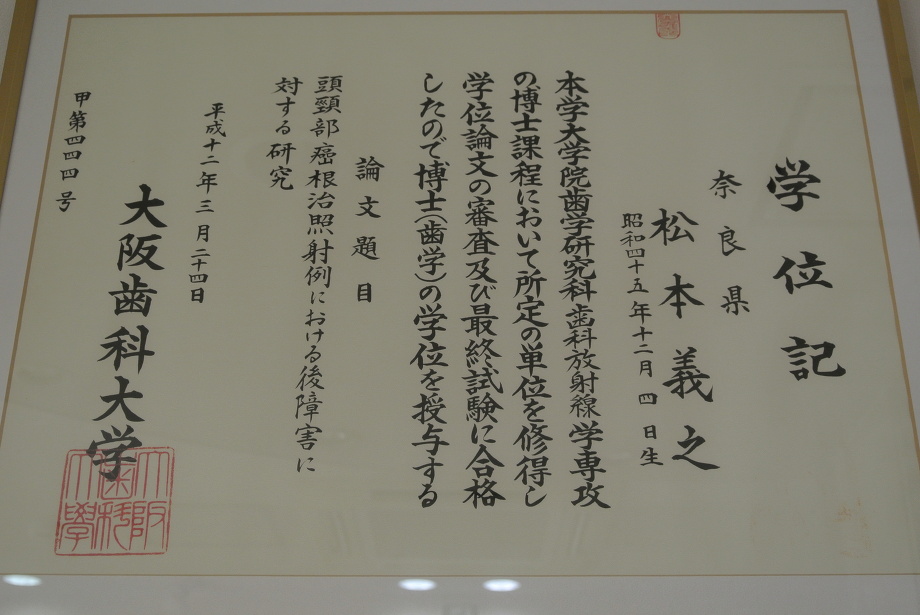 学位記
奈良県
松本義之
昭和四十五年十二月四日生
本学大学院歯学研究科歯科放射線学専攻
の博士課程において所定の単位を修得し
学位論文の審査及び最終試験に合格
したので博士(歯学)の学位を授与する
論文題目
頭頸部癌根治照射例における後障害に
対する研究
平成十二年三月二十四日
大阪歯科大学
甲第四四四号
大阪歯科大學